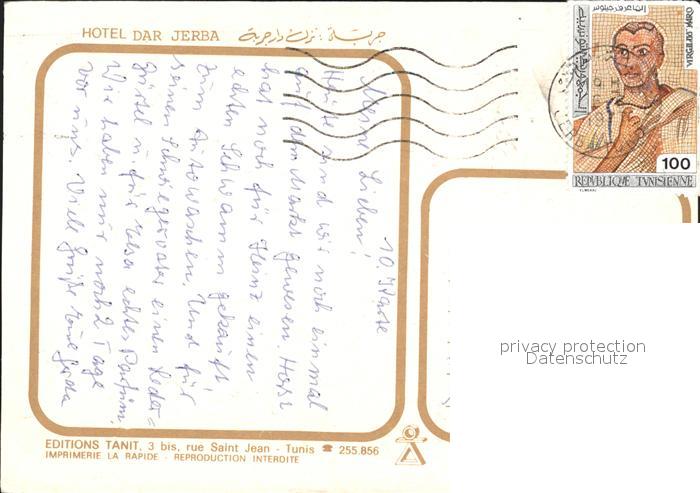 HOTEL DAR JERBA
VIRGILIUS MARO
100
REPUBLIQUE TUNISIENNE
10. Karte
Meine Lieben!
Heute sind wir noch einmal
auf dem Markt gewesen. Horst
hat noch für Heinz einen
echten Schwamm gekauft
zum Autowaschen. Und für
seinen Schwiegervater einen Leder=
gürtel u. für echtes Parfüm.
Wir haben nur noch 2 Tage
vor uns. Viele Grüße Eure
privacy protection
Datenschutz
EDITIONS TANIT, 3 bis, rue Saint Jean - Tunis ☎ 255.856
IMPRIMERIE LA RAPIDE - REPRODUCTION INTERDITE